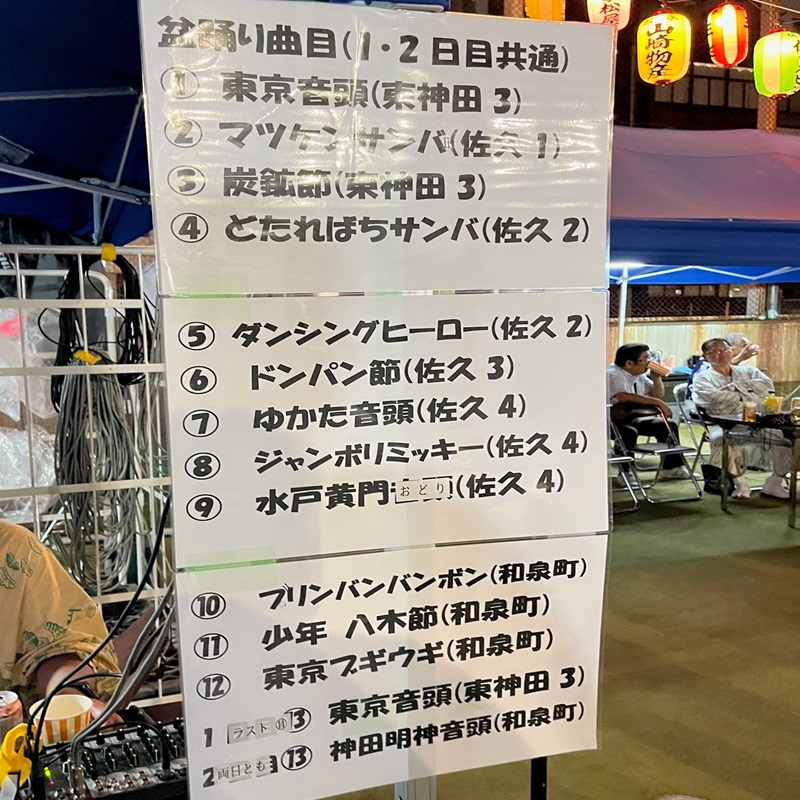 盆踊り曲目(1・2日目共通)
① 東京音頭(東神田 3)
② マツケンサンバⅡ(佐久 1)
③ 炭鉱節(東神田 3)
④ どたればちサンバ(佐久 2)
⑤ ダンシングヒーロー(佐久 2)
⑥ ドンパン節(佐久 3)
⑦ ゆかた音頭(佐久 4)
⑧ ジャンボリミッキー(佐久 4)
⑨ 水戸黄門おどり(佐久 4)
⑩ ブリンバンバンボン(和泉町)
⑪ 少年 八木節(和泉町)
⑫ 東京ブギウギ(和泉町)
1 ラスト⑭ 13 東京音頭(東神田 3)
2 両日とも ⑬ 神田明神音頭(和泉町)
松屋
山崎物産